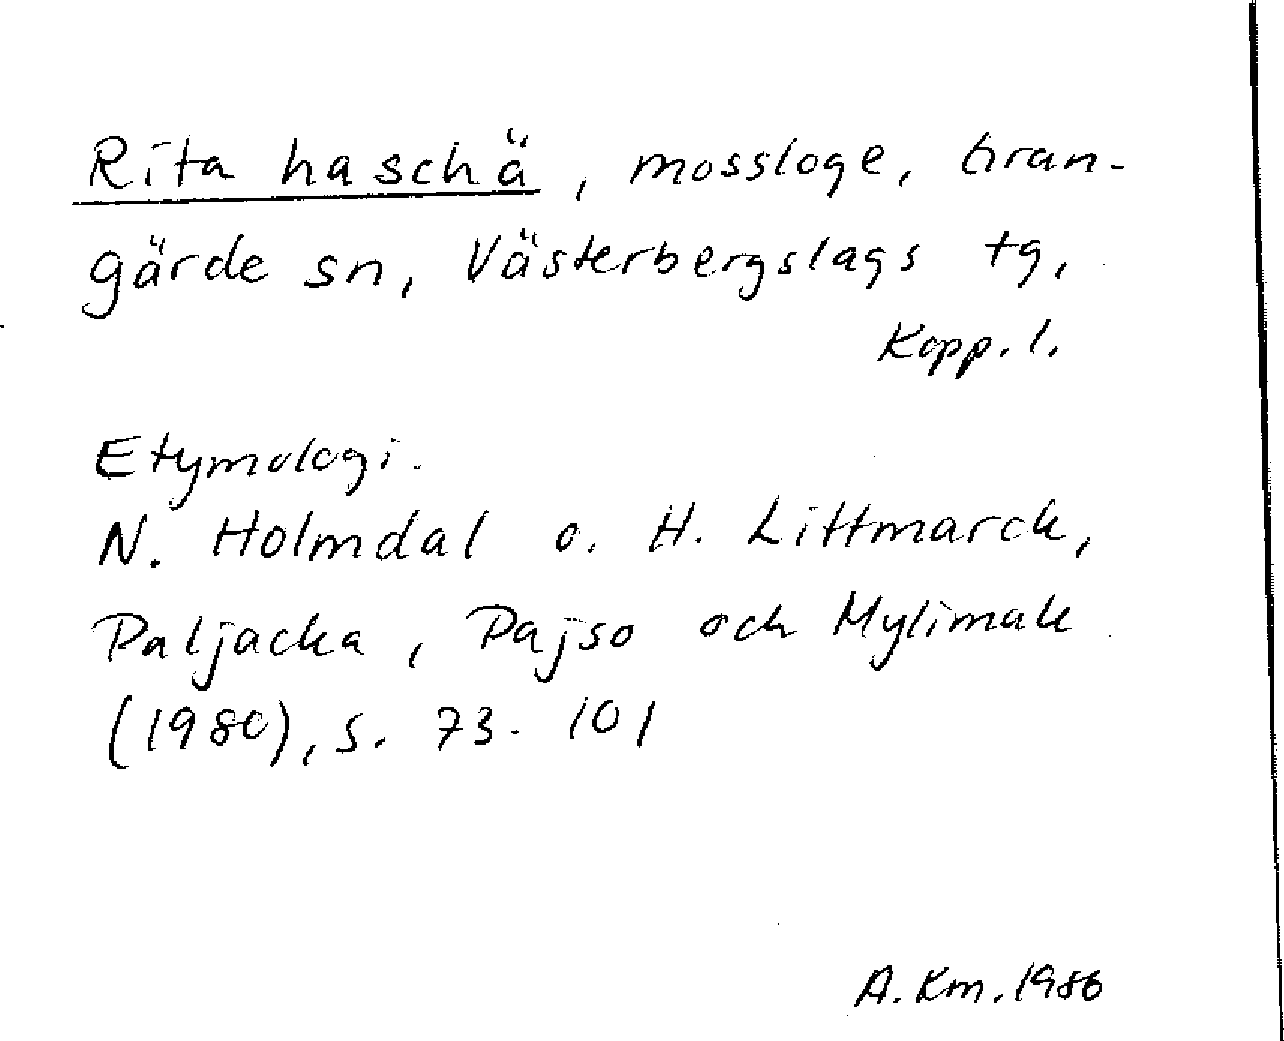 Rita haschä, mossloge, Gran-
gärde sn, Västerbergslags tg,
Kopp. l.
Etymologi.
N. Holmdal o. H. Littmarck,
Paljacka, Pajso och Mylimak
(1980), s. 73-101
A. Km. 1986